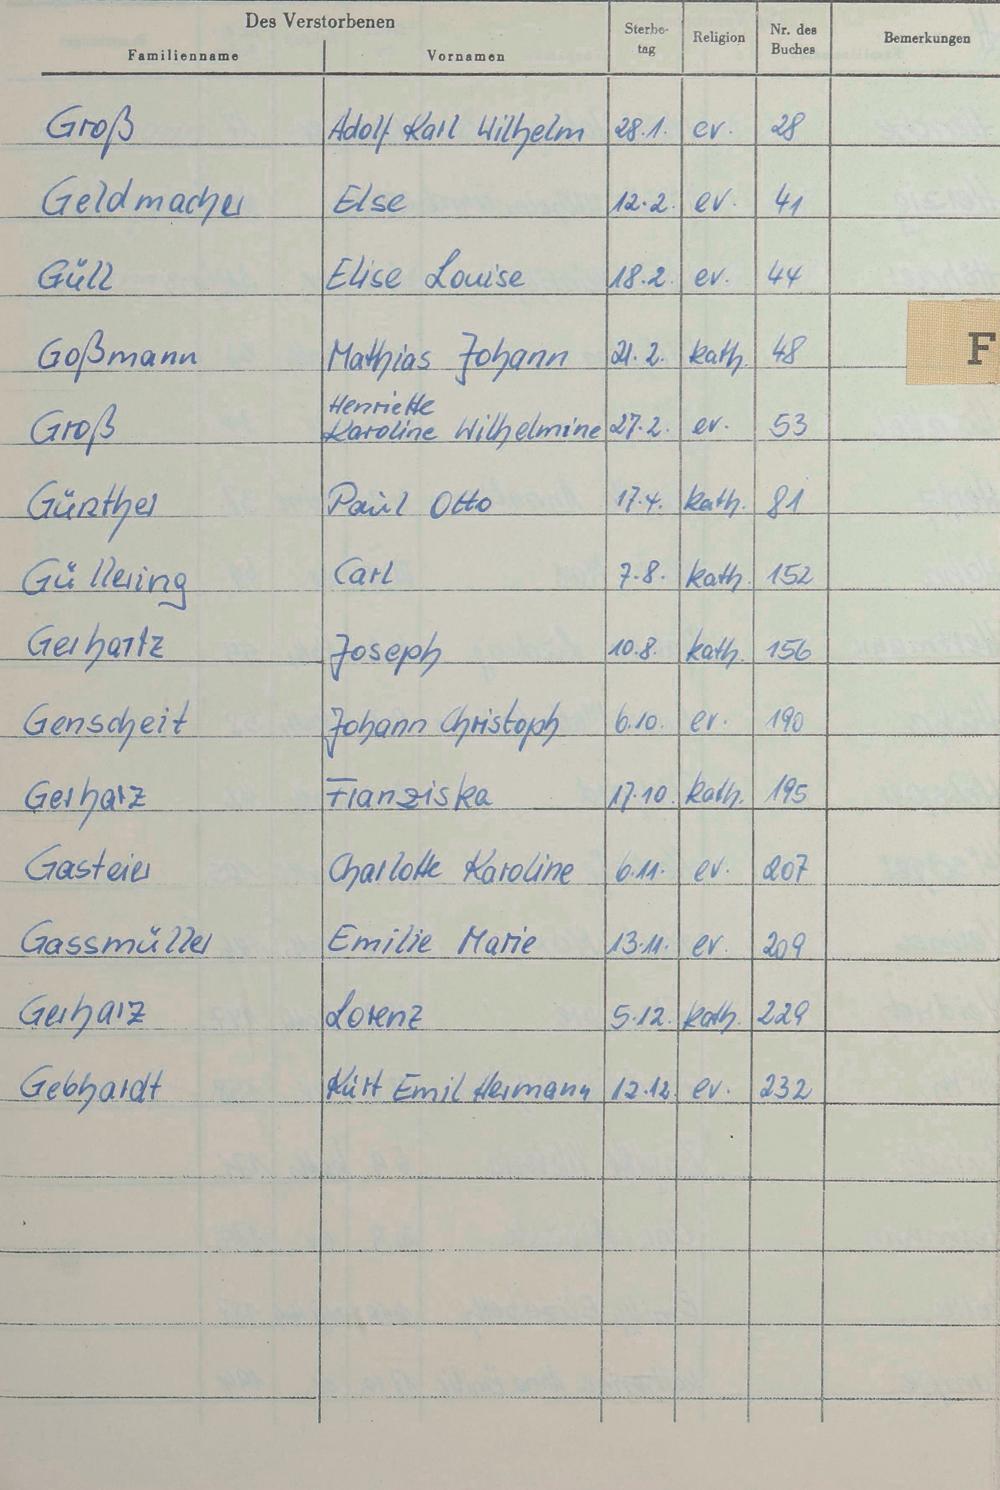 Des Verstorbenen
Familienname Vornamen Sterbe-
tag Religion Nr. des
Buches Bemerkungen
Groß Adolf Karl Wilhelm 28.1. ev. 28
Geldmacher Else 12.2. ev. 41
Güll Elise Louise 18.2. ev. 44
Goßmann Mathias Johann 21.2. kath. 48
F
Henriette
Groß Karoline Wilhelmine 27.2. ev. 53
Günther Paul Otto 17.4. kath. 81
Güllering Carl 7.8. kath. 152
Gerhartz Joseph 10.8. kath. 156
Genscheit Johann Christoph 6.10. ev. 190
Gerharz Franziska 17.10. kath. 195
Gasteier Charlotte Karoline 6.11. ev. 207
Gassmüller Emilie Marie 13.11. ev. 209
Gerharz Lorenz 5.12. kath. 229
Gebhardt Kurt Emil Hermann 12.12. ev. 232